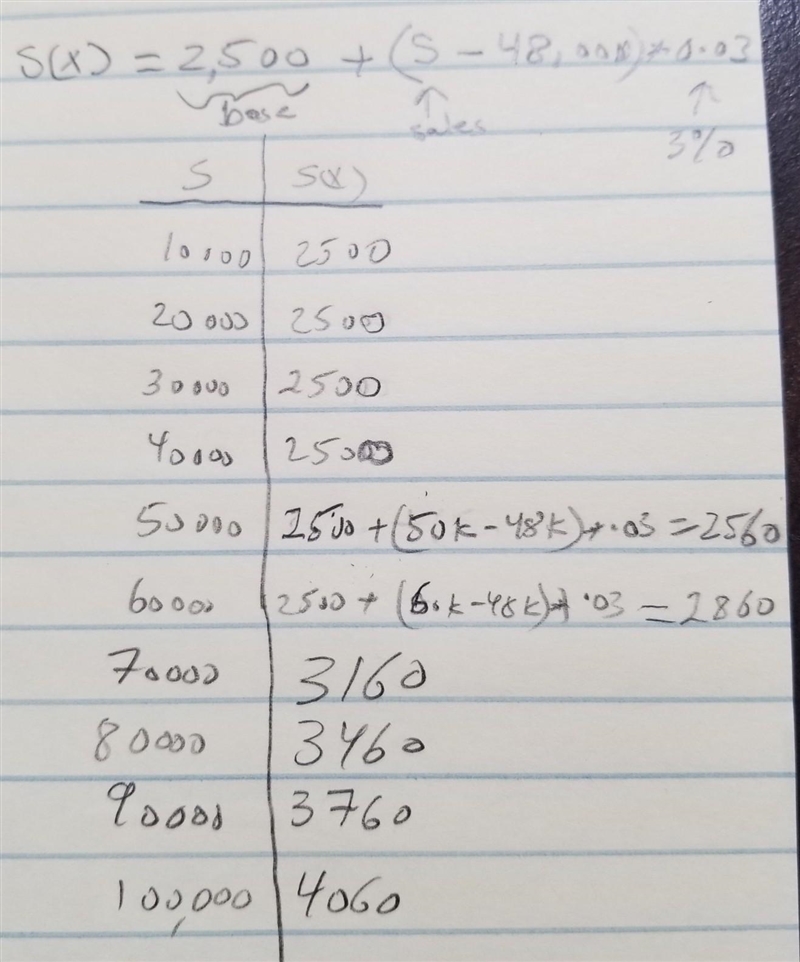 S(x) = 2,500 + (S - 48,000) * 0.03
base sales 3%
S S(x)
10000 2500
20000 2500
30000 2500
40000 2500
50000 2500 + (50k - 48k) * .03 = 2560
60000 2500 + (60k - 48k) * .03 = 2860
70000 3160
80000 3460
90000 3760
100,000 4060